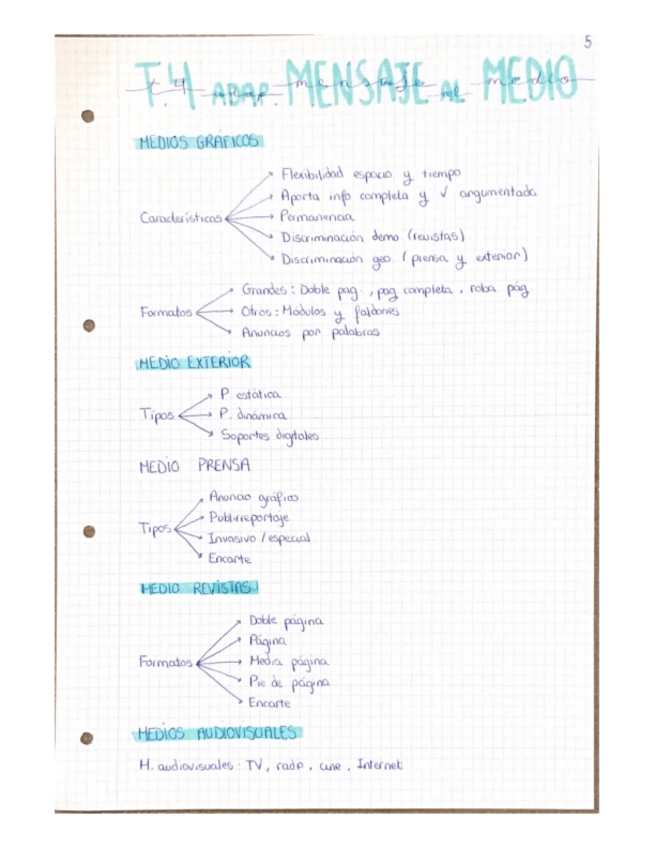 5
T.4 ADAP. MENSAJE AL MEDIO
MEDIOS GRÁFICOS
Flexibilidad espacio y tiempo
Aporta info completa y √ argumentada
Características
Permanencia
Discriminación demo (revistas)
Discriminación geo (prensa y exterior)
Grandes: Doble pag, pag completa, roba pág
Formatos
Otros: Módulos y faldones
Anuncios por palabras
MEDIO EXTERIOR
P estática
Tipos
P. dinámica
Soportes digitales
MEDIO PRENSA
Anuncio gráfico
Publirreportaje
Tipos
Invasivo / especial
Encarte
MEDIO REVISTAS
Doble página
Página
Formatos
Media página
Pie de página
Encarte
MEDIOS AUDIOVISUALES
M. audiovisuales: TV, radio, cine, Internet